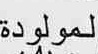 لمولودة